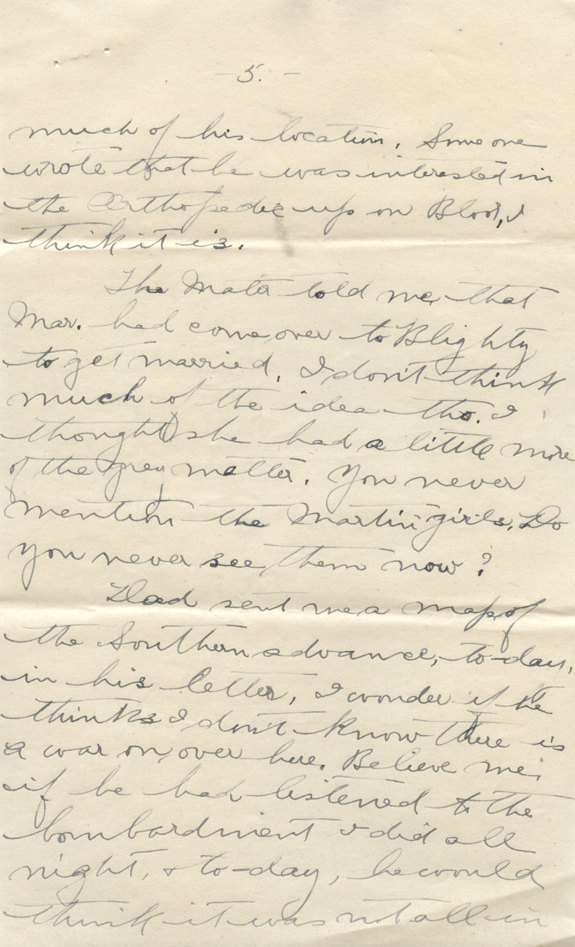 - 5. -
much of his location. Some one
wrote that he was interested in
the Orthopedic up on Bloor, I
think it is.
The Mater told me that
Mar. had come over to Blighty
to get married. I don't think
much of the idea tho. I
thought she had a little more
of the grey matter. You never
mention the Martin girls. Do
you never see them now?
Dad sent me a map of
the Southern advance, to-day,
in his letter, I wonder if he
thinks I don't know there is
a war on, over here. Believe me,
if he had listened to the
bombardment I did all
night, & to-day, he would
think it was not all in